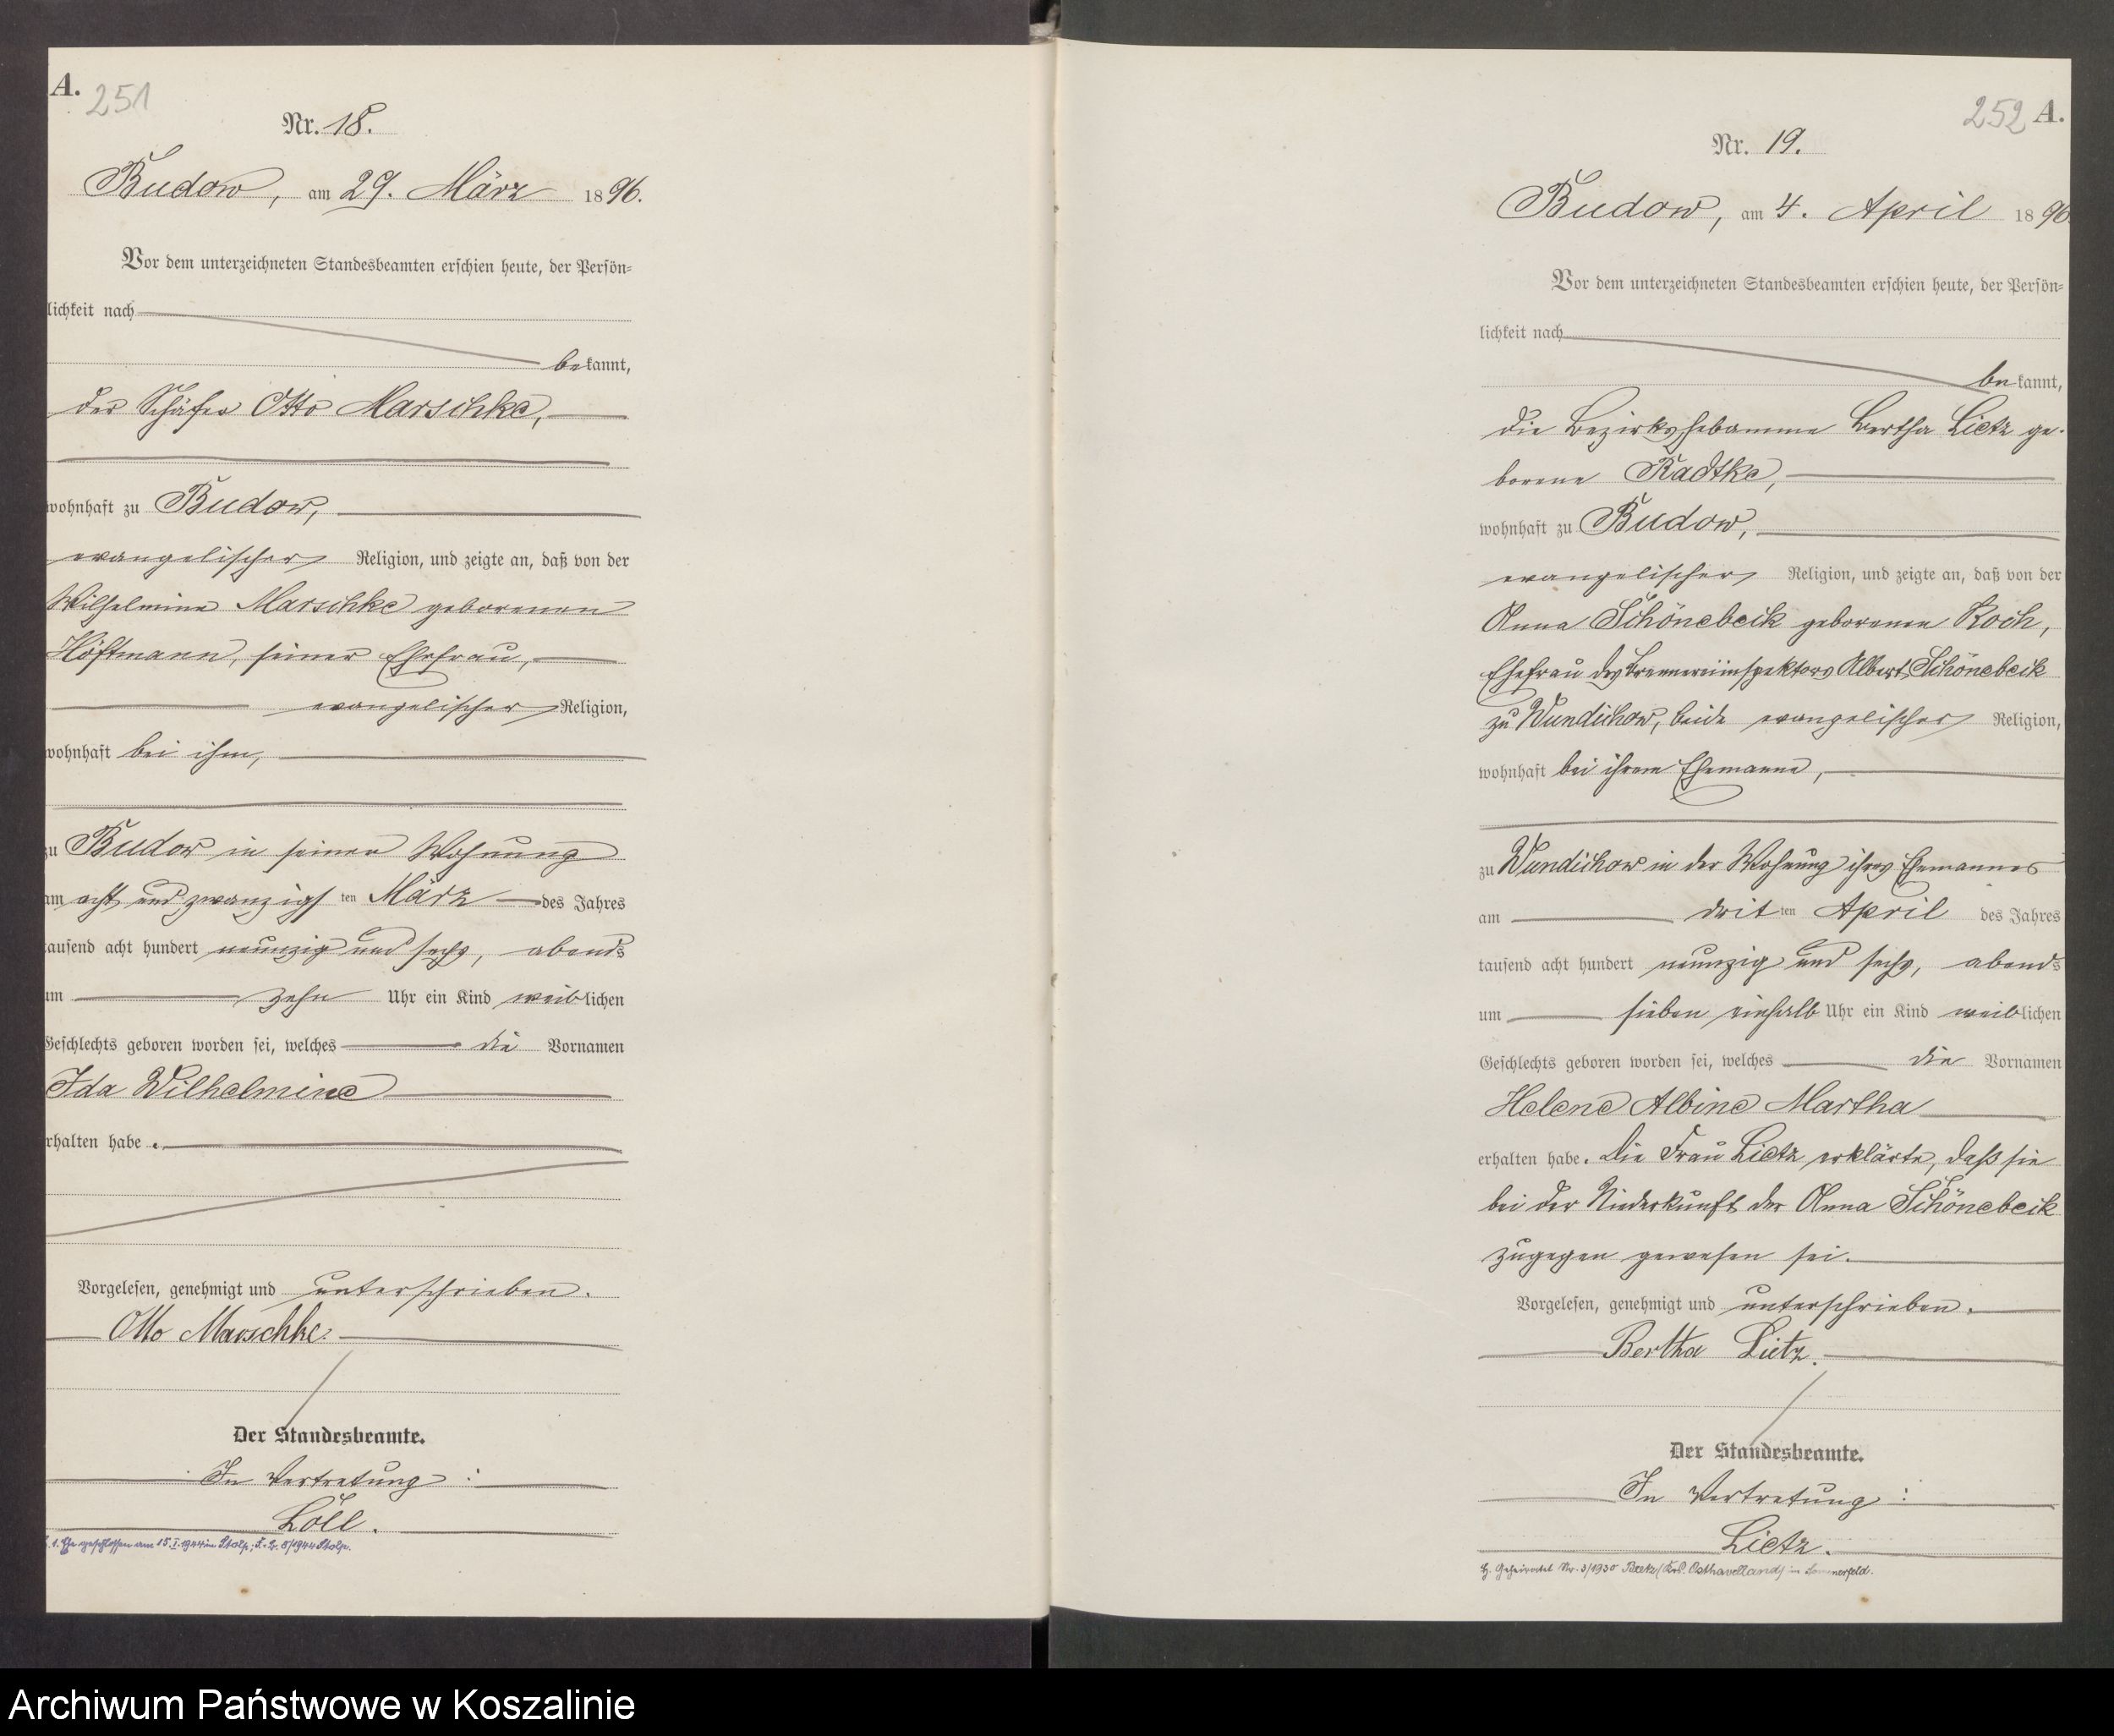 A.
251
Nr. 18.
Budow, am 29. März 1896.
Vor dem unterzeichneten Standesbeamten erschien heute, der Persön-
lichkeit nach
bekannt,
der Schäfer Otto Marschke,
wohnhaft zu Budow,
evangelischer Religion, und zeigte an, daß von der
Wilhelmine Marschke geborenen
Höftmann, seiner Ehefrau,
evangelischer Religion,
wohnhaft bei ihm,
zu Budow in seiner Wohnung
am acht und zwanzigsten März des Jahres
tausend acht hundert neunzig und sechs, abends
um zehn Uhr ein Kind weiblichen
Geschlechts geboren worden sei, welches die Vornamen
Ida Wilhelmine
erhalten habe.
Vorgelesen, genehmigt und unterschrieben.
Otto Marschke.
Der Standesbeamte.
In Vertretung:
Löll.
1. Ehe geschlossen am 15.I.1944 in Stolp; 8/1944 Stolp.
252 A.
Nr. 19.
Budow, am 4. April 1896
Vor dem unterzeichneten Standesbeamten erschien heute, der Persön-
lichkeit nach
bekannt,
die Bezirkshebamme Bertha Lietz ge-
borene Radtke,
wohnhaft zu Budow,
evangelischer Religion, und zeigte an, daß von der
Anna Schönebeck geborenen Koch,
Ehefrau des Brennereiinspektors Albert Schönebeck
zu Wundichow, beide evangelischer Religion,
wohnhaft bei ihrem Ehemanne,
zu Wundichow in der Wohnung ihres Ehemannes
am dritten April des Jahres
tausend acht hundert neunzig und sechs, abends
um sieben einhalb Uhr ein Kind weiblichen
Geschlechts geboren worden sei, welches die Vornamen
Helene Albine Martha
erhalten habe. Die Frau Lietz erklärte, daß sie
bei der Niederkunft der Anna Schönebeck
zugegen gewesen sei.
Vorgelesen, genehmigt und unterschrieben.
Bertha Lietz.
Der Standesbeamte.
In Vertretung:
Lietz.
H. Geheiratet Nr. 3/1930 (Krs. Osthavelland) in
Archiwum Państwowe w Koszalinie